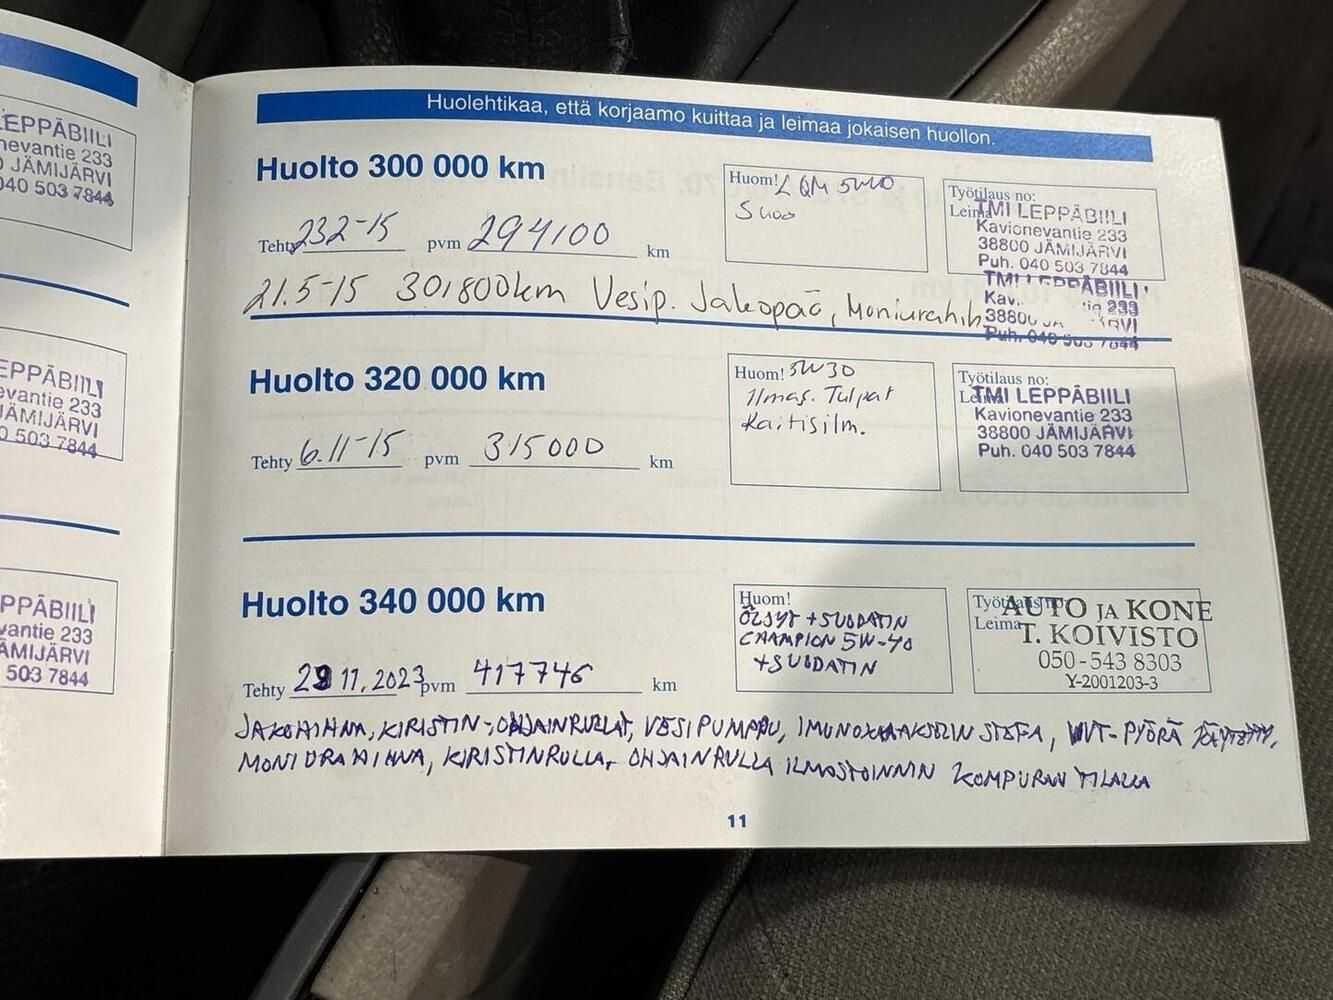 EPPÄBIILI
nevantie 233
JÄMIJÄRVI
040 503 7844
EPPÄBIILI
evantie 233
JÄMIJÄRVI
0 503 7844
PPÄBIILI
vantie 233
ÄMIJÄRVI
503 7844
Huolehtikaa, että korjaamo kuittaa ja leimaa jokaisen huollon.
Huolto 300 000 km
Tehty 23.2-15 pvm 294100 km
Huom!
Työtilaus no:
Leima
TMI LEPPÄBIILI
Kavionevantie 233
38800 JÄMIJÄRVI
Puh. 040 503 7844
21.5-15 301800km Vesip. Jakopää, Moniurahih
TMI LEPPÄBIILI
Kav. tie 233
38800 JÄ RVI
Puh. 040 503 7844
Huolto 320 000 km
Tehty 6.11-15 pvm 315000 km
Huom! 5W30
Ilmas. Tulpat
Raitisilm.
Työtilaus no:
Leima
TMI LEPPÄBIILI
Kavionevantie 233
38800 JÄMIJÄRVI
Puh. 040 503 7844
Huolto 340 000 km
Tehty 29 11.2023 pvm 417746 km
Huom!
ÖLJYT + SUODATIN
CHAMPION 5W-40
+ SUODATIN
Työtilaus no:
Leima
AUTO JA KONE
T. KOIVISTO
050-543 8303
Y-2001203-3
JAKOHIHNA, KIRISTIN- OHJAINRULLAT, VESIPUMPPU, IMUNOKKAAKSELIN STEFA, VVT-PYÖRÄ
MONIURAHIHNA, KIRISTINRULLA, OHJAINRULLA ILMASTOINNIN KOMPURAN TILALLA
11